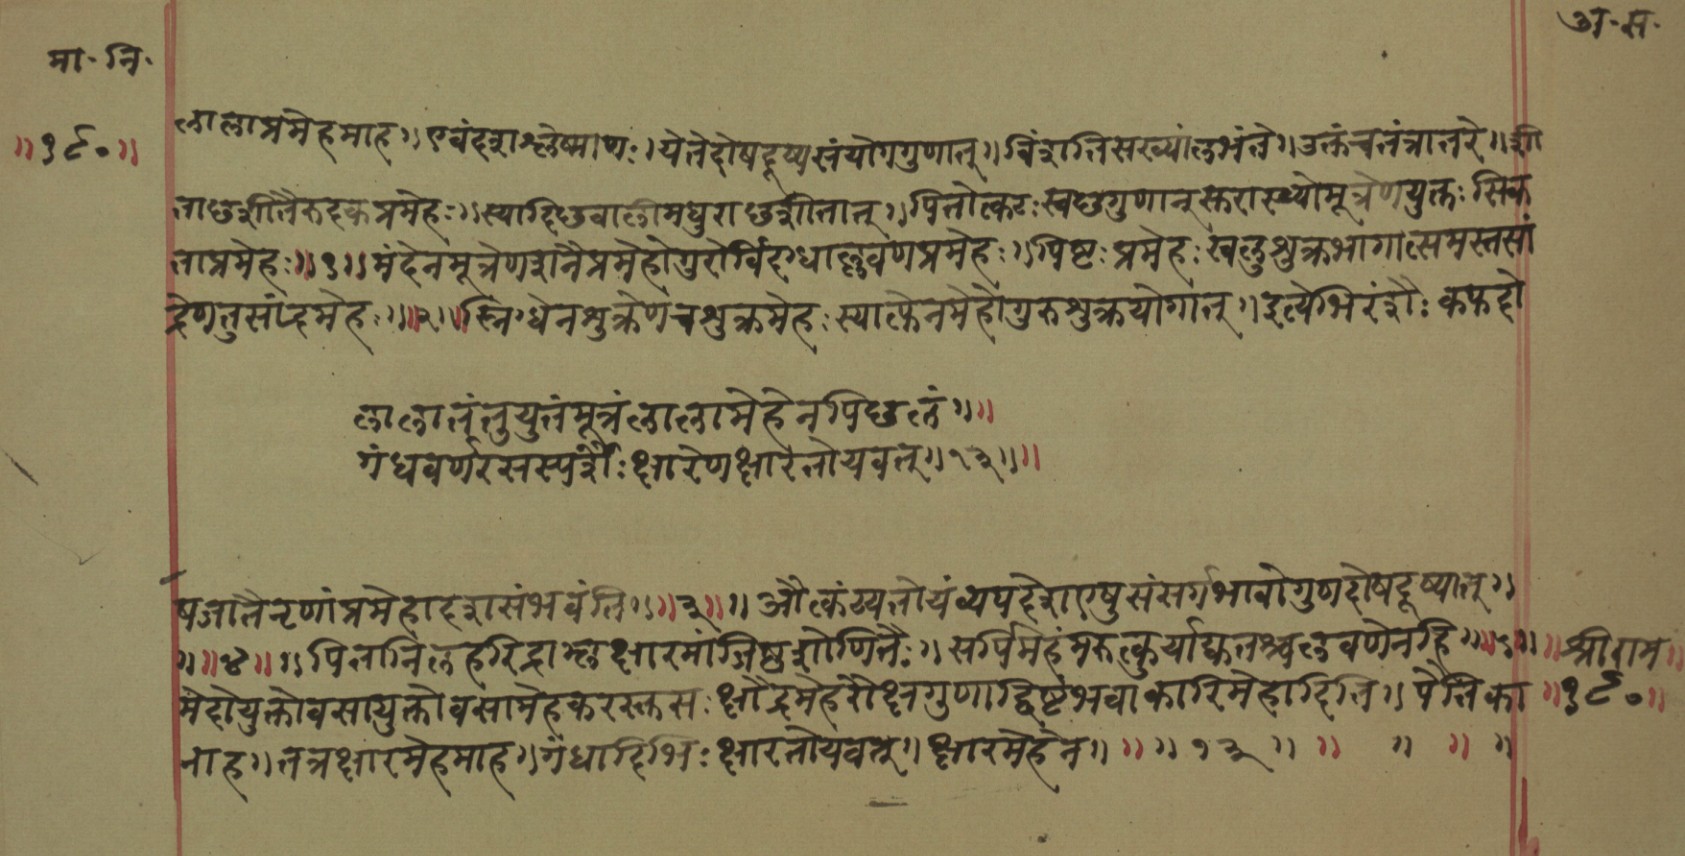 मा॰ नि॰
अ॰ स॰
॥१९०॥
लालाप्रमेहमाह॥ एवं दशश्लेष्माणः॥ येतेदोषदूष्यसंयोगगुणात्॥ विंशतिसख्यां लभंते॥ उक्तंचतंत्रातरे॥ शी
ताछशीतैरुदकप्रमेहः॥ स्यादिछवालीमधुराछशीतात्॥ पित्तोत्कटःस्वछगुणात्सुरास्थ्योमूत्रेणयुक्तः सिक
ताप्रमेहः॥१॥ मंदेनमूत्रेणशनैप्रमेहोगुरोर्विदग्धाल्लवणप्रमेहः॥ पिष्टः प्रमेहः खलुशुक्रभागात्समस्तसां
द्रेणतुसांद्रमेहः॥२॥ स्निग्धेनशुक्रेणचशुक्रमेहः स्यात्फेनमेहोगुरुशुक्रयोगात्॥ इत्येभिरंशैः कफदो
लालातंतुयुतंमूत्रंलालामेहेनपिछलं॥
गंधवर्णरसस्पर्शैः क्षारेणक्षारतोयवत्॥१३॥
षजातैनृणांप्रमेहादशसंभवंति॥३॥ औत्कंठ्यतोयंव्यपदेशएषुसंसर्गभावोगुणदोषदूष्यात्॥
॥४॥ पित्तानिलहरिद्राम्लक्षारमांजिष्ठशोणितैः॥ सर्पिर्मेहंमरुत्कुर्याद्घृतश्चलवणेनहि॥५॥
॥श्रीराम॥
मेदोयुक्तोवसायुक्तोवसामेहकरस्तसः क्षौद्रमेहंरौक्ष्नगुणाद्विष्टंभवाकारिमेहादिति॥ पैत्तिका
॥१९०॥
नाह॥ तत्रक्षारमेहमाह॥ गंधादिभिः क्षारतोयवत्॥ क्षारमेहेन॥ ॥१३॥ ॥ ॥ ॥